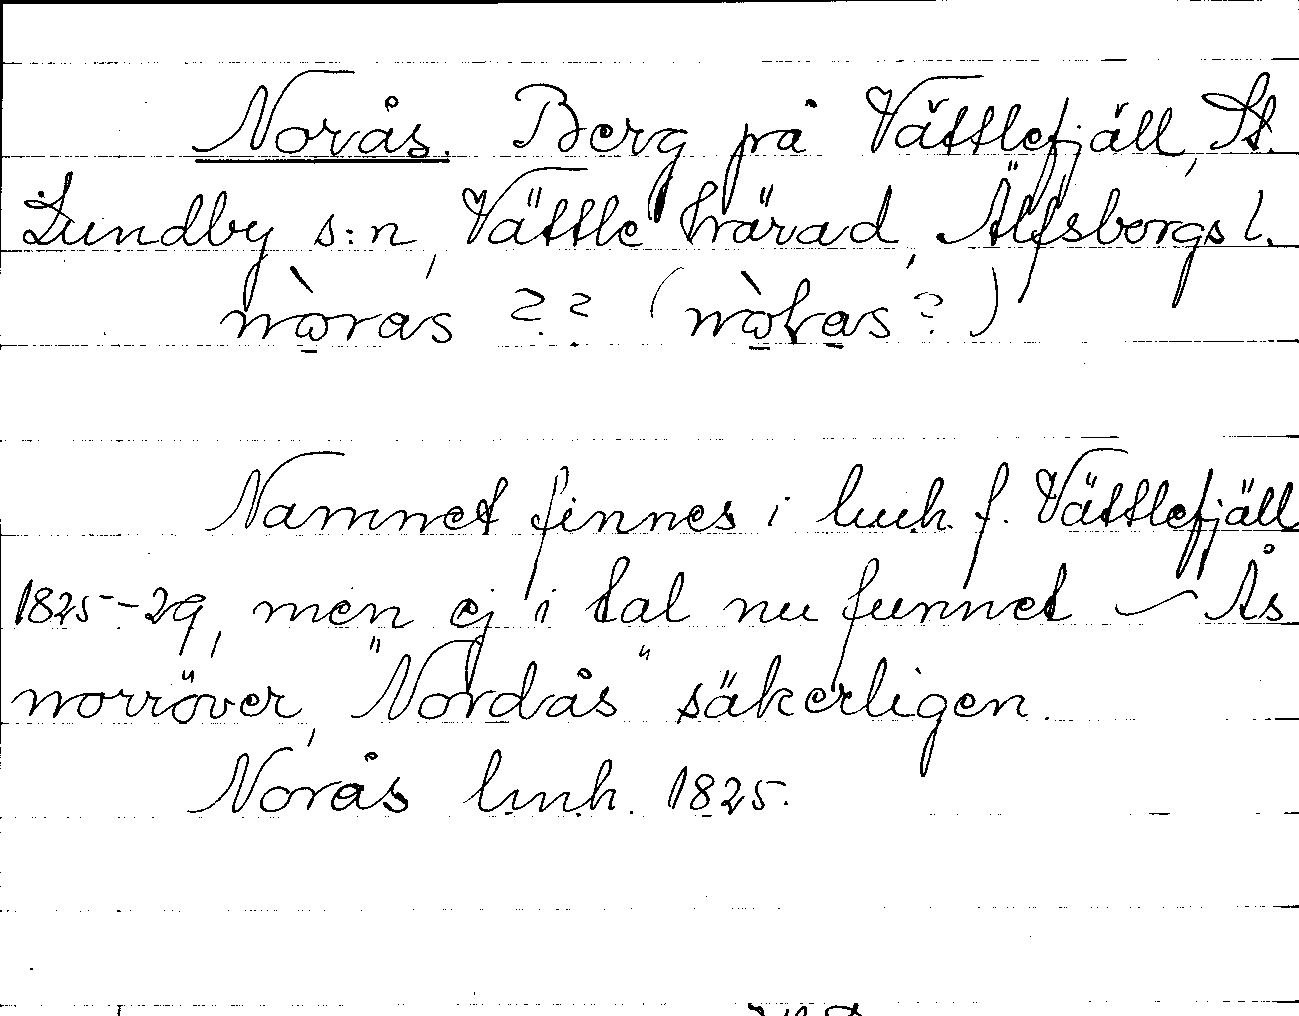 Norås. Berg på Vättlefjäll, St.
Lundby s:n, Vättle härad, Älfsborgs l.
nò̱ras ?? ( ?)
Namnet finnes i lmh. f. Vättlefjäll
1825-29, men ej i tal nu funnet ~ Ås
norröver, "Nordås" säkerligen.
Norås lmh. 1825.